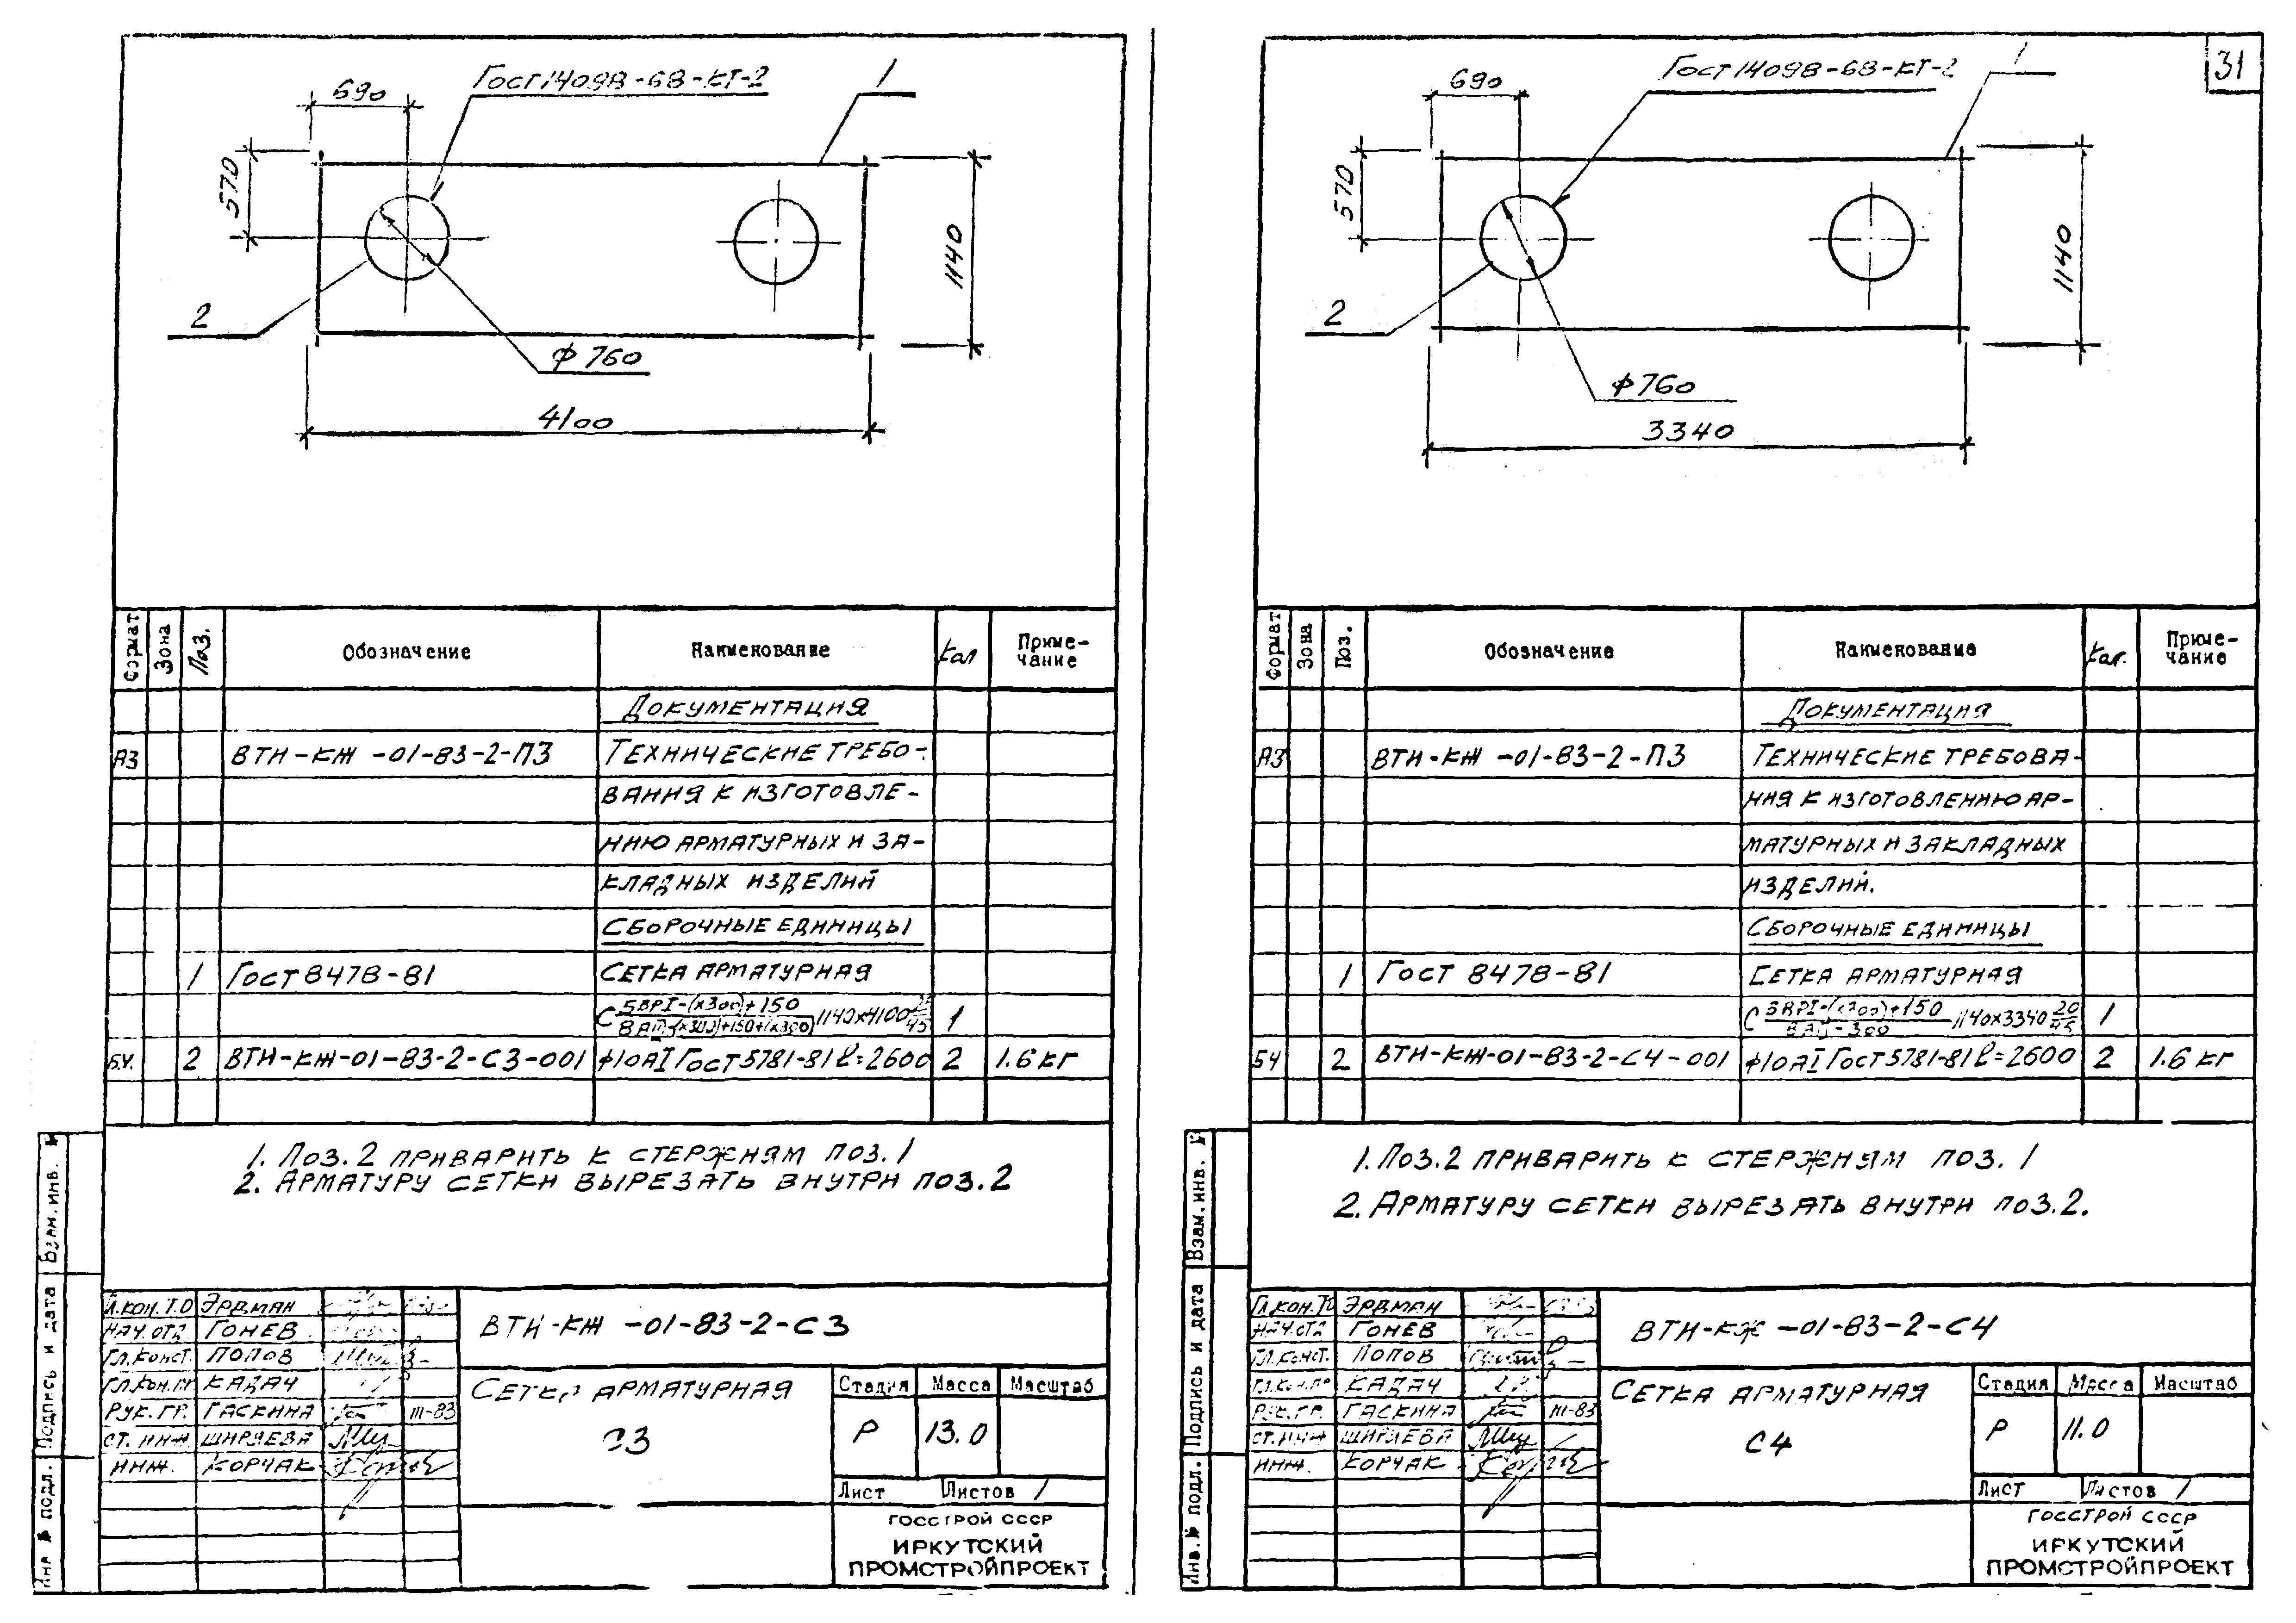 690
ГОСТ 14098-68-КТ-2
1
570
1140
2
ф760
4100
Формат
Зона
Поз.
Обозначение
Наименование
Кол
Приме-
чание
Документация
А3 ВТИ-КЖ-01-83-2-ПЗ Технические требо-
вания к изготовле-
нию арматурных и за-
кладных изделий
Сборочные единицы
1 ГОСТ 8478-81 Сетка арматурная
1
Б.Ч. 2 ВТИ-КЖ-01-83-2-С3-001 ф10АI ГОСТ 5781-81 l=2600 2 1.6 кг
1. Поз.2 приварить к стержням поз.1
2. Арматуру сетки вырезать внутри поз.2
Взам.инв. №
Подпись и дата
Инв № подл.
Эрдман
Нач.отд Гонев
Гл.конст. Попов
Кадач
Рук.гр. Гаскина III-83
Ст.инж Ширяева
Инж. Корчак
ВТИ-КЖ-01-83-2-С3
Сетка арматурная
С3
Стадия Масса Масштаб
Р 13.0
Лист Листов 1
ГОССТРОЙ СССР
ИРКУТСКИЙ
ПРОМСТРОЙПРОЕКТ
31
690
ГОСТ 14098-68-КТ-2
1
570
1140
2
ф760
3340
Формат
Зона
Поз.
Обозначение
Наименование
Кол.
Приме-
чание
Документация
А3 ВТИ-КЖ-01-83-2-ПЗ Технические требова-
ния к изготовлению ар-
матурных и закладных
изделий.
Сборочные единицы
1 ГОСТ 8478-81 Сетка арматурная
1
БЧ 2 ВТИ-КЖ-01-83-2-С4-001 ф10АI ГОСТ 5781-81 l=2600 2 1.6 кг
1. Поз.2 приварить к стержням поз.1
2. Арматуру сетки вырезать внутри поз.2.
Взам.инв. №
Подпись и дата
Инв.№ подл.
Эрдман
Нач.отд Гонев
Гл.конст. Попов
Кадач
Рук.гр. Гаскина III-83
Ст.инж Ширяева
Инж. Корчак
ВТИ-КЖ-01-83-2-С4
Сетка арматурная
С4
Стадия Масса Масштаб
Р 11.0
Лист Листов 1
ГОССТРОЙ СССР
ИРКУТСКИЙ
ПРОМСТРОЙПРОЕКТ